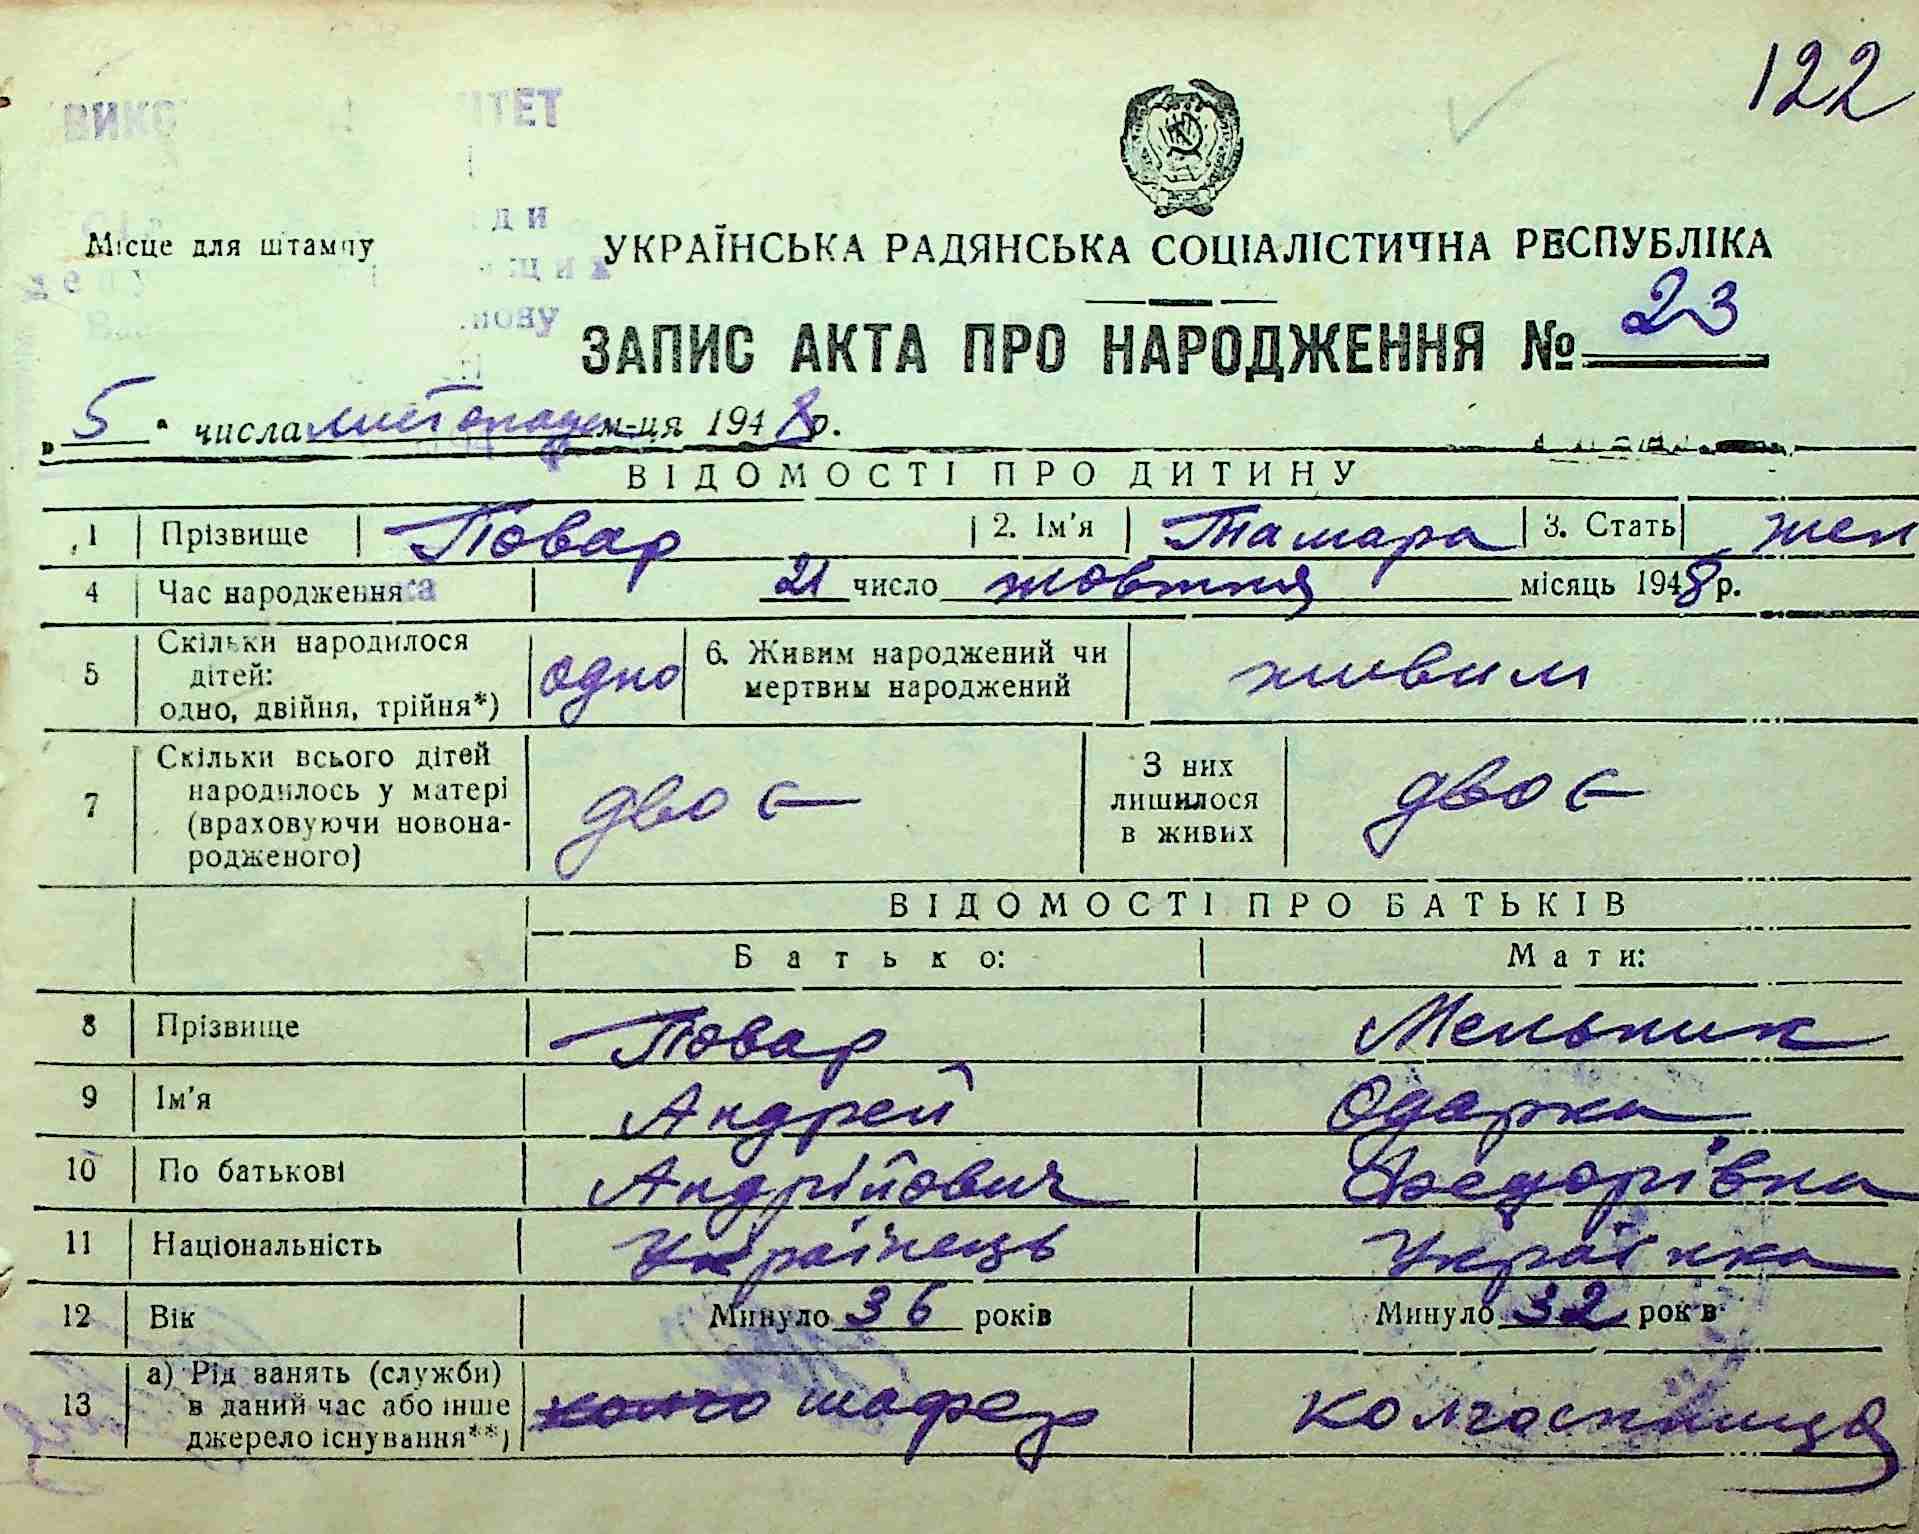 122
ВИКО ІТЕТ
ди
Місце для штампу
УКРАЇНСЬКА РАДЯНСЬКА СОЦІАЛІСТИЧНА РЕСПУБЛІКА
ЗАПИС АКТА ПРО НАРОДЖЕННЯ № 23
„5“ числа листопада м-ця 1948 р.
ВІДОМОСТІ ПРО ДИТИНУ
1 Прізвище Повар 2. Ім'я Тамара 3. Стать жен
4 Час народження 21 число жовтня місяць 1948 р.
5 Скільки народилося дітей: одно, двійня, трійня*) одно 6. Живим народжений чи мертвим народжений живим
7 Скільки всього дітей народилось у матері (враховуючи новонародженого) двоє З них лишилося в живих двоє
ВІДОМОСТІ ПРО БАТЬКІВ
Батько: Мати:
8 Прізвище Повар Мельник
9 Ім'я Андрей Одарка
10 По батькові Андрійович Федорівна
11 Національність Українець Українка
12 Вік Минуло 36 років Минуло 32 рок в
13 а) Рід занять (служби) в даний час або інше джерело існування**) шофер колгоспниця